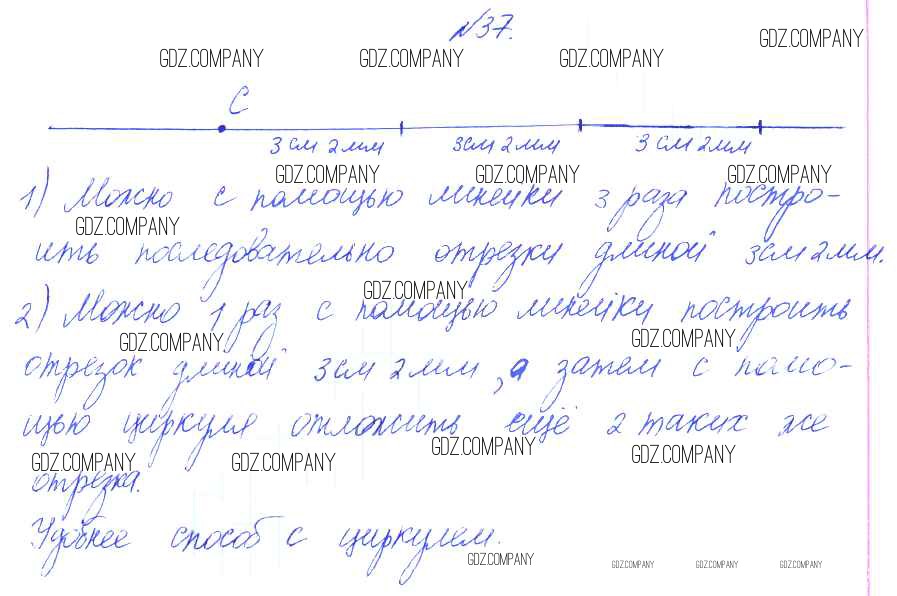 №37.
GDZ.COMPANY GDZ.COMPANY GDZ.COMPANY GDZ.COMPANY
С
3 см 2 мм 3 см 2 мм 3 см 2 мм
GDZ.COMPANY GDZ.COMPANY GDZ.COMPANY
1) Можно с помощью линейки 3 раза постро-
GDZ.COMPANY
ить последовательно отрезки длиной 3 см 2 мм.
GDZ.COMPANY
2) Можно 1 раз с помощью линейки построить
GDZ.COMPANY GDZ.COMPANY
отрезок длиной 3 см 2 мм, а затем с помо-
щью циркуля отложить ещё 2 таких же
GDZ.COMPANY GDZ.COMPANY GDZ.COMPANY GDZ.COMPANY
отрезка.
Удобнее способ с циркулем.
GDZ.COMPANY GDZ.COMPANY GDZ.COMPANY GDZ.COMPANY